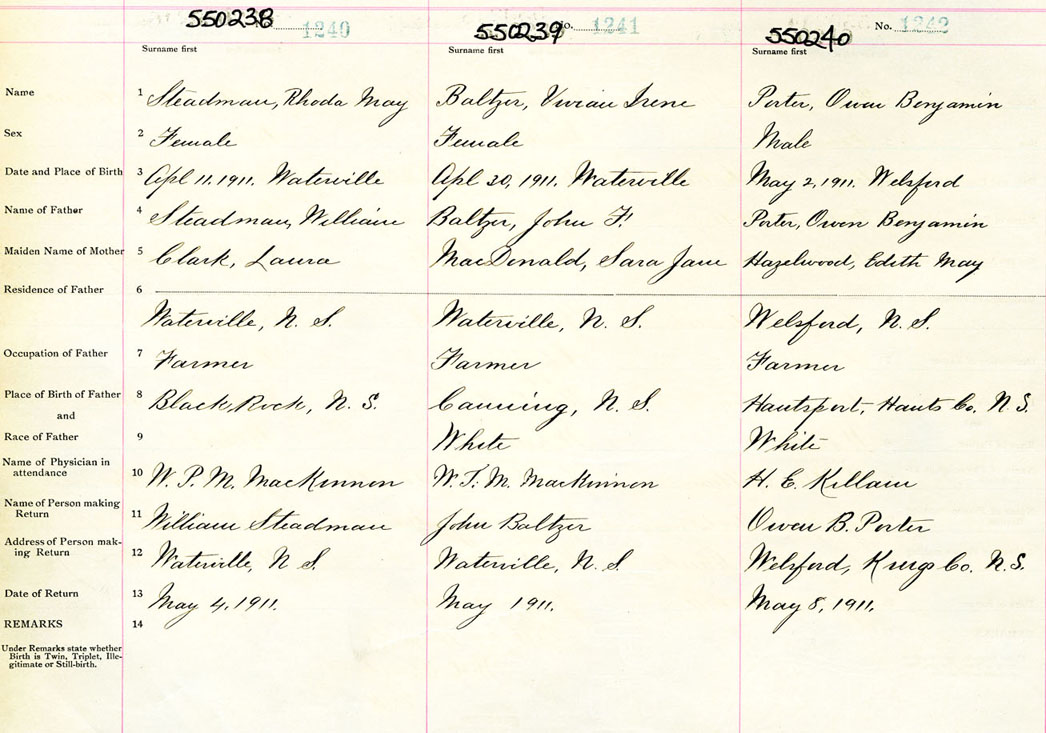 550238 1240 550239 No. 1241 550240 No. 1242
Surname first Surname first Surname first
Name 1 Steadman, Rhoda May Baltzer, Vivian Irene Porter, Owen Benjamin
Sex 2 Female Female Male
Date and Place of Birth 3 Apl 11. 1911. Waterville Apl 20, 1911. Waterville May 2, 1911. Welsford
Name of Father 4 Steadman, William Baltzer, John F. Porter, Owen Benjamin
Maiden Name of Mother 5 Clark, Laura MacDonald, Sara Jane Hazelwood, Edith May
Residence of Father 6
Waterville, N. S. Waterville, N. S. Welsford, N. S.
Occupation of Father 7 Farmer Farmer Farmer
Place of Birth of Father 8 Black Rock, N. S. Canning, N. S. Hantsport, Hants Co. N. S.
and
Race of Father 9 White White
Name of Physician in
attendance 10 W. P. M. MacKinnon W. T. M. MacKinnon H. E. Killam
Name of Person making
Return 11 William Steadman John Baltzer Owen B. Porter
Address of Person mak-
ing Return 12 Waterville, N. S. Waterville, N. S. Welsford, Kings Co. N. S.
Date of Return 13 May 4, 1911. May 1911. May 8, 1911.
REMARKS 14
Under Remarks state whether
Birth is Twin, Triplet, Ille-
gitimate or Still-birth.